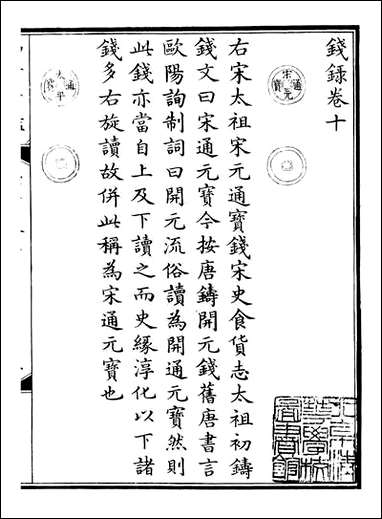 錢錄卷十
宋元通寶
右宋太祖宋元通寶錢宋史食貨志太祖初鑄
錢文曰宋通元寶今按唐鑄開元錢舊唐書言
歐陽詢制詞曰開元流俗讀為開通元寶然則
此錢亦當自上及下讀之而史緣淳化以下諸
錢多右旋讀故併此稱為宋通元寶也
太平通